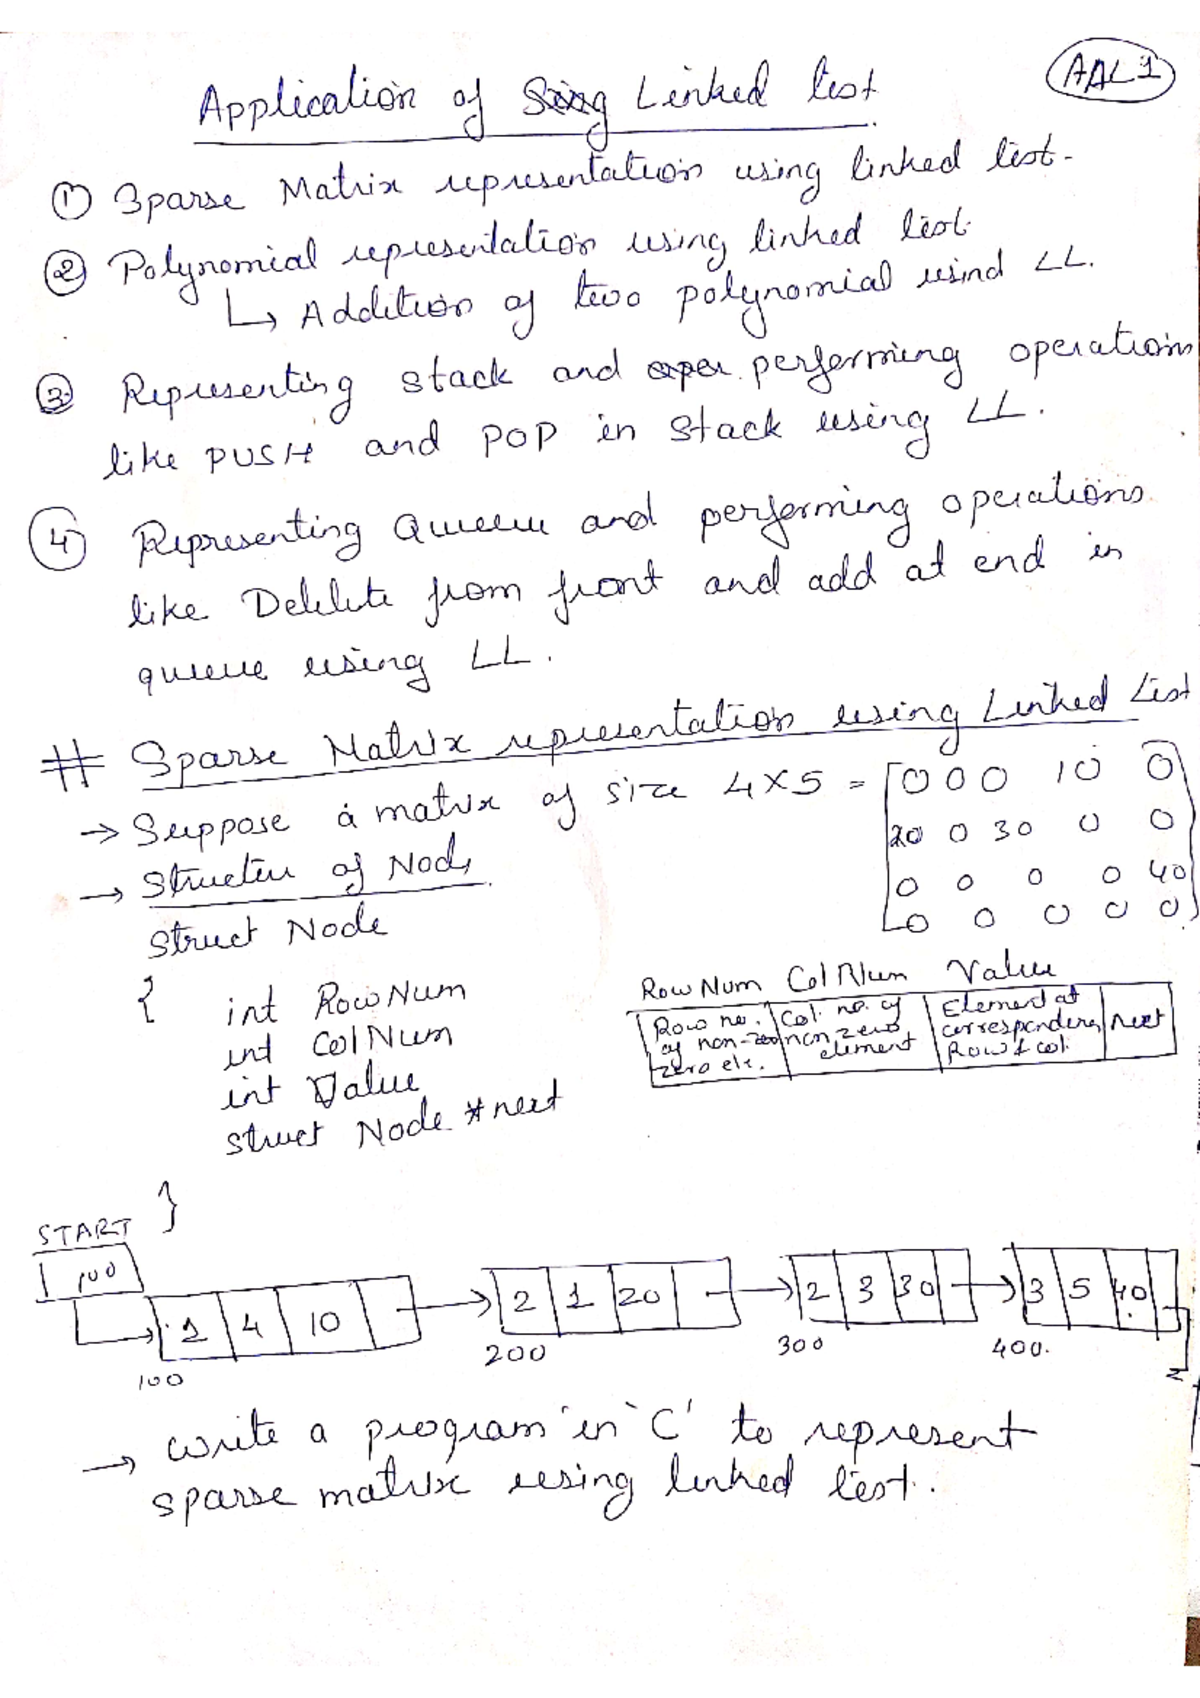 AAL 1
Application of Sing Linked list
① Sparse Matrix representation using linked list.
② Polynomial representation using linked list.
↳ Addition of two polynomial usind LL.
③ Representing stack and oper. performing operations
like PUSH and POP in stack using LL.
④ Representing Queeu and performing operations
like Delete from front and add at end in
queue using LL.
# Sparse Matrix representation using Linked List
→ Suppose a matrix of size 4X5 = [0 0 0 10 0
20 0 30 0 0
0 0 0 0 40
0 0 0 0 0]
→ Structure of Node
struct Node
{ int RowNum
int ColNum
int Value
struct Node *next
}
RowNum ColNum Value
Row no. of non-zero zero ele. | Col. no. of non, zero element | Element at corresponding Row & col. | next
START
100
1 4 10
2 1 20
2 3 30
3 5 40
100 200 300 400.
→ Write a program in 'C' to represent
sparse matrix using linked list.